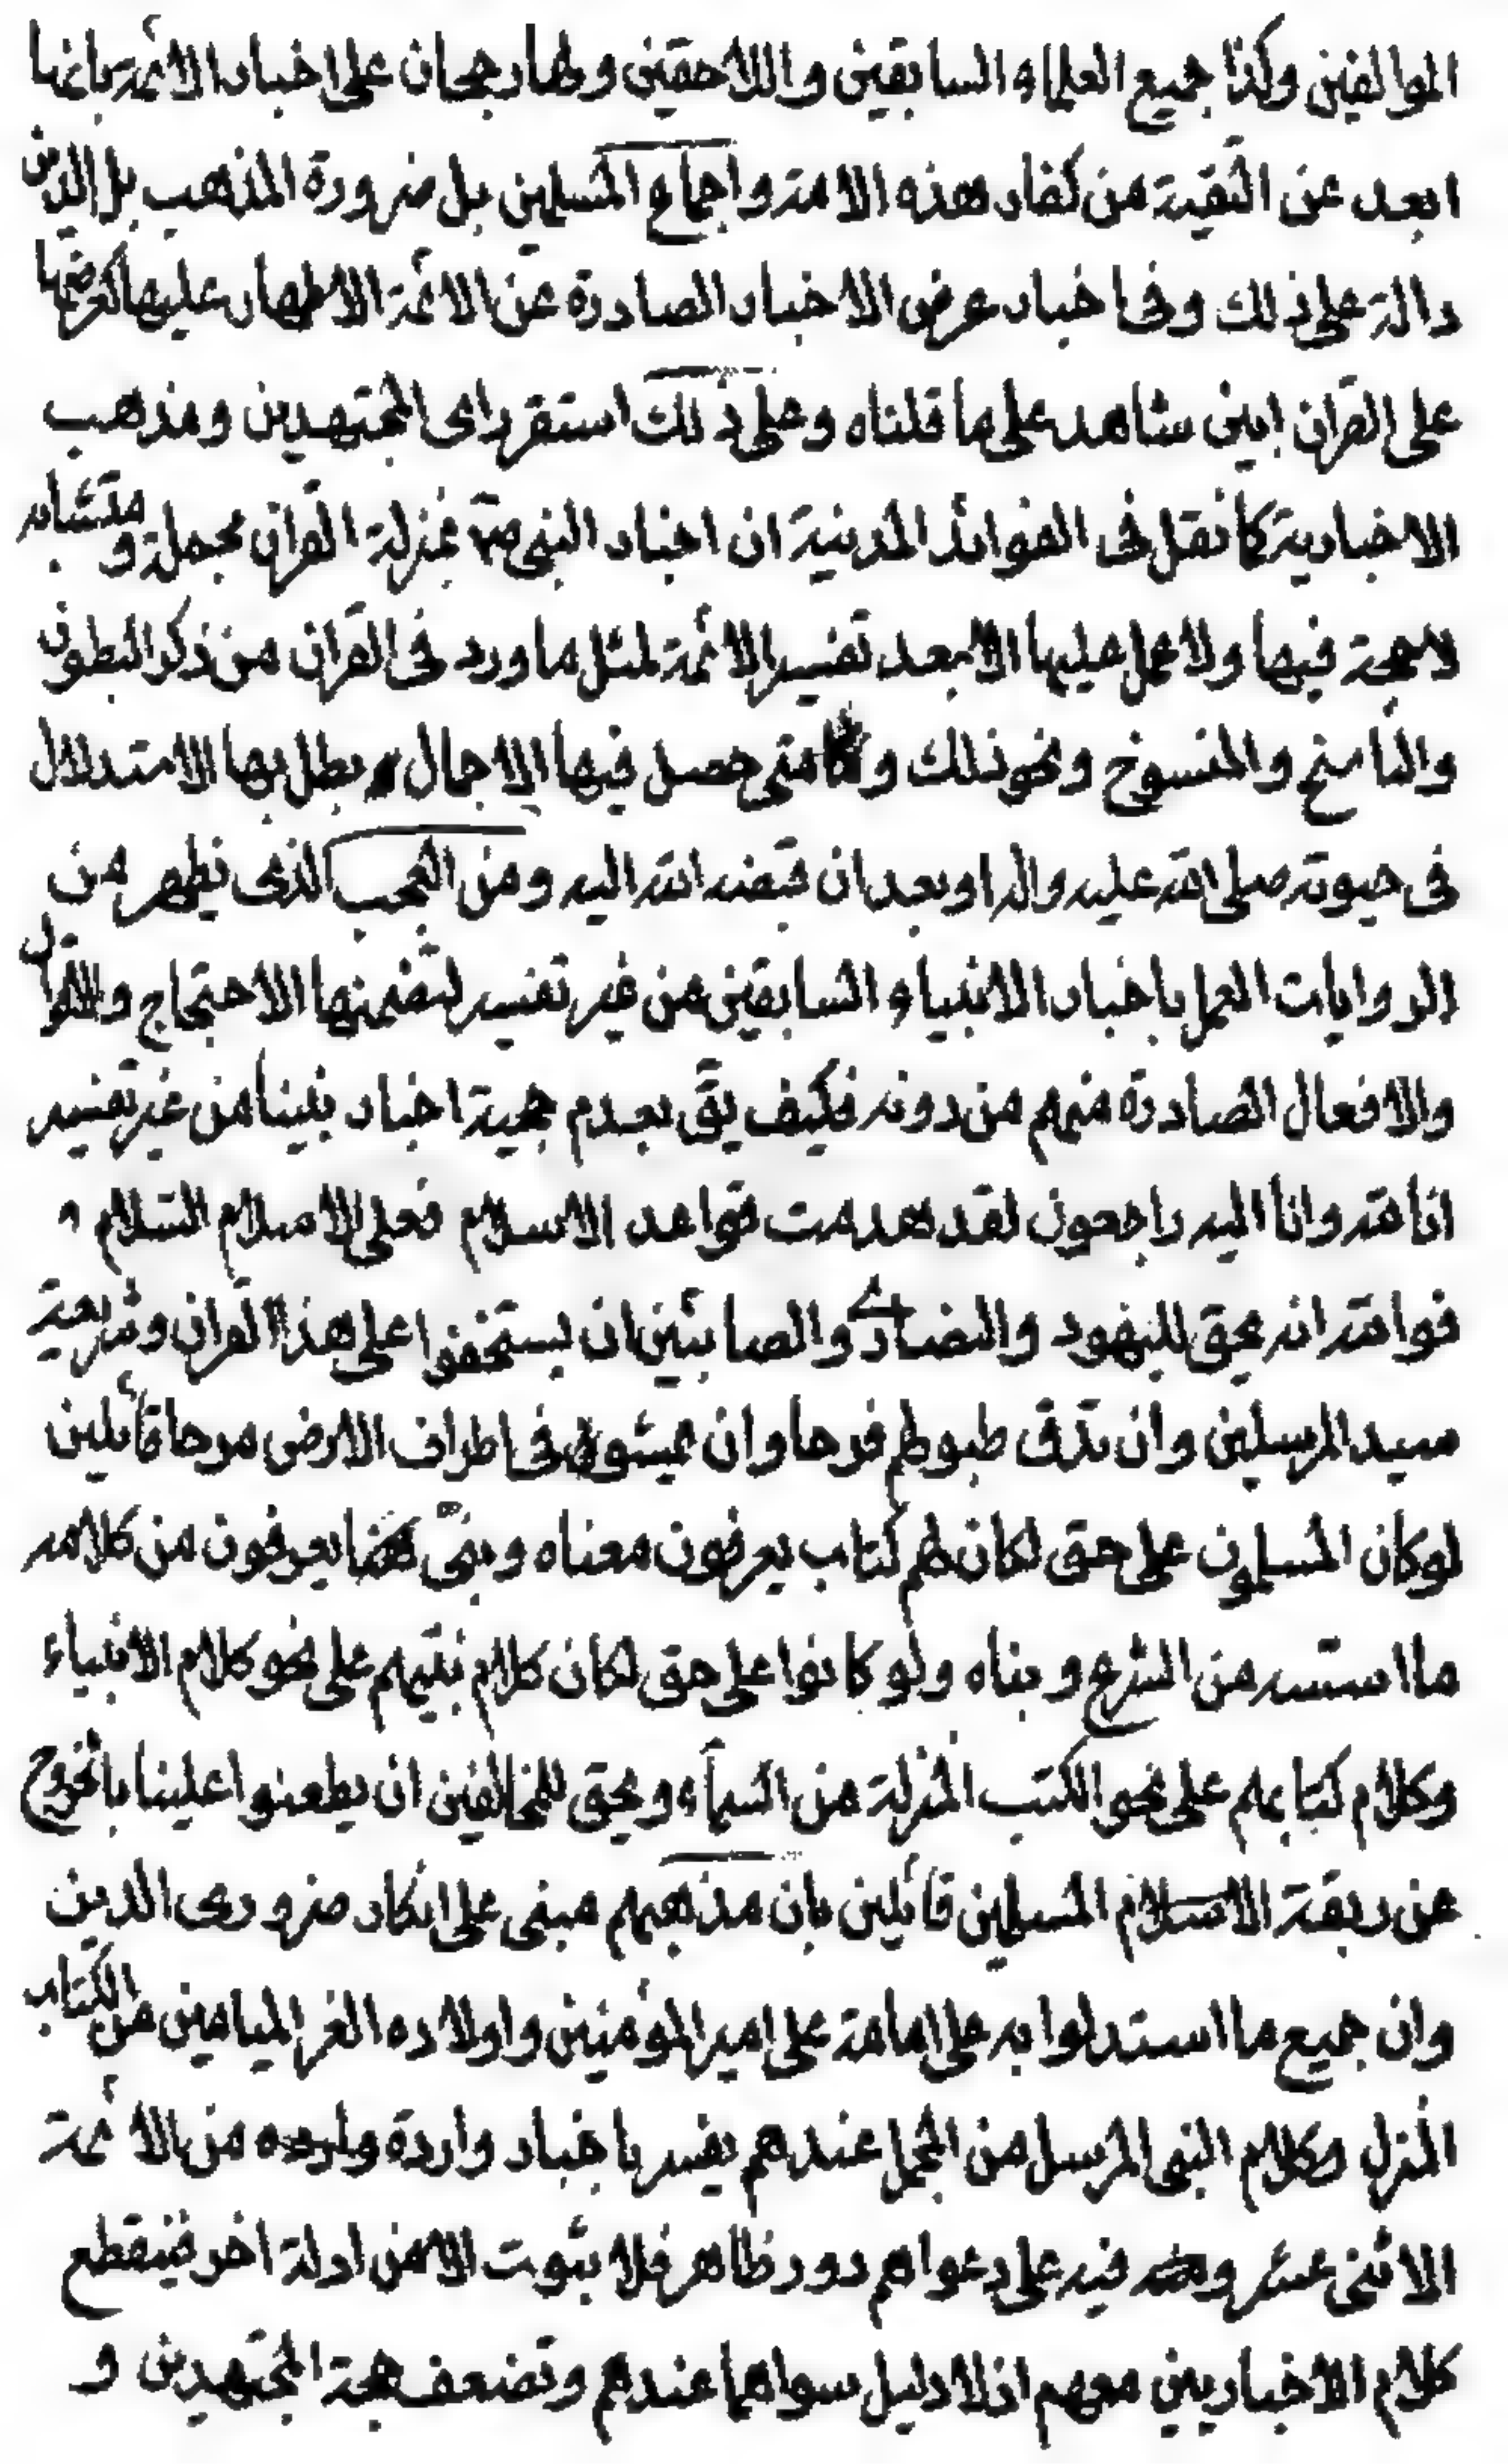 الموالفين وكذا جميع العلماء السابقين واللاحقين ولها رجحان على اخبار الائمة بانها
ابعد عن التقية من كفار هذه الامة واجماع المسلمين بل ضرورة المذهب بل الدين
دالة على ذلك وفى اخبار عرض الاخبار الصادرة عن الائمة الاطهار عليها كعرضها
على القران ابين شاهد على ما قلناه وعلى ذلك استقر راى المجتهدين ومذهب
الاخبارية كما نقل فى الفوائد المدنية ان اخبار النبى ص بمنزلة القران مجملة ومتشابه
لا حجة فيها ولا عمل عليها الا بعد تفسير الائمة لمثل ما ورد فى القران من ذكر البطون
والناسخ والمنسوخ ونحو ذلك و متى حصل فيها الاجمال بطل بها الاستدلال
فى حيوته صلى الله عليه واله او بعد ان قبضه الله اليه ومن العجب الذى يظهر من
الروايات العمل باخبار الانبياء السابقين من غير تفسير لتضمنها الاحتجاج والاقوال
والافعال الصادرة منهم من دونه فكيف يق بعدم حجية اخبار نبينا من غير تفسير
انا لله وانا اليه راجعون لقد هدمت قواعد الاسلام فعلى الاسلام السلام
فوالله انه يحق لليهود والنصارى والصابئين ان يستخفوا على هذا القران وشريعة
سيد المرسلين وان تدق طبولهم فرحا وان يمشون فى اطراف الارض مرحا قائلين
لو كان المسلمون على حق لكان لهم كتاب يعرفون معناه ونبى يعرفون من كلامه
ما اسسه من الشرع وبناه ولو كانوا على حق لكان كلام نبيهم على نحو كلام الانبياء
وكلام كتابهم على نحو الكتب المنزلة من السماء ويحق للمخالفين ان يطعنوا علينا بالخروج
عن ربقة الاسلام المسلمين قائلين بان مذهبهم مبنى على انكار ضرورى الدين
وان جميع ما استدلوا به على امامة على امير المؤمنين واولاده الغر الميامين من الكتاب
المنزل وكلام النبى المرسل من المجمل عندهم يفسر باخبار واردة وارده من الائمة
الاثنى عشر فيه على دعواهم دور ظاهر فلا يثبوت الا من ادلة اخر فينقطع
كلام الاخباريين معهم اذ لا دليل سواهما عندهم وتضعف حجة المجتهدين و